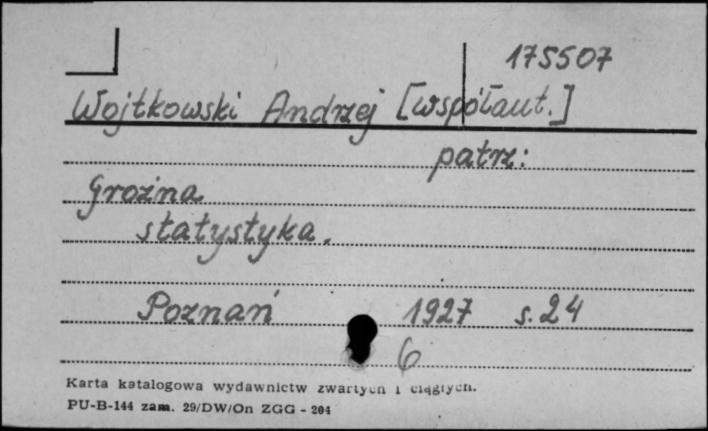 175507
Wojtkowski Andrzej [współaut.]
patrz:
Groźna
statystyka.
Poznań 1927 s. 24
6
Karta katalogowa wydawnictw zwartych i ciągłych.
PU-B-144 zam. 29/DW/On ZGG - 204